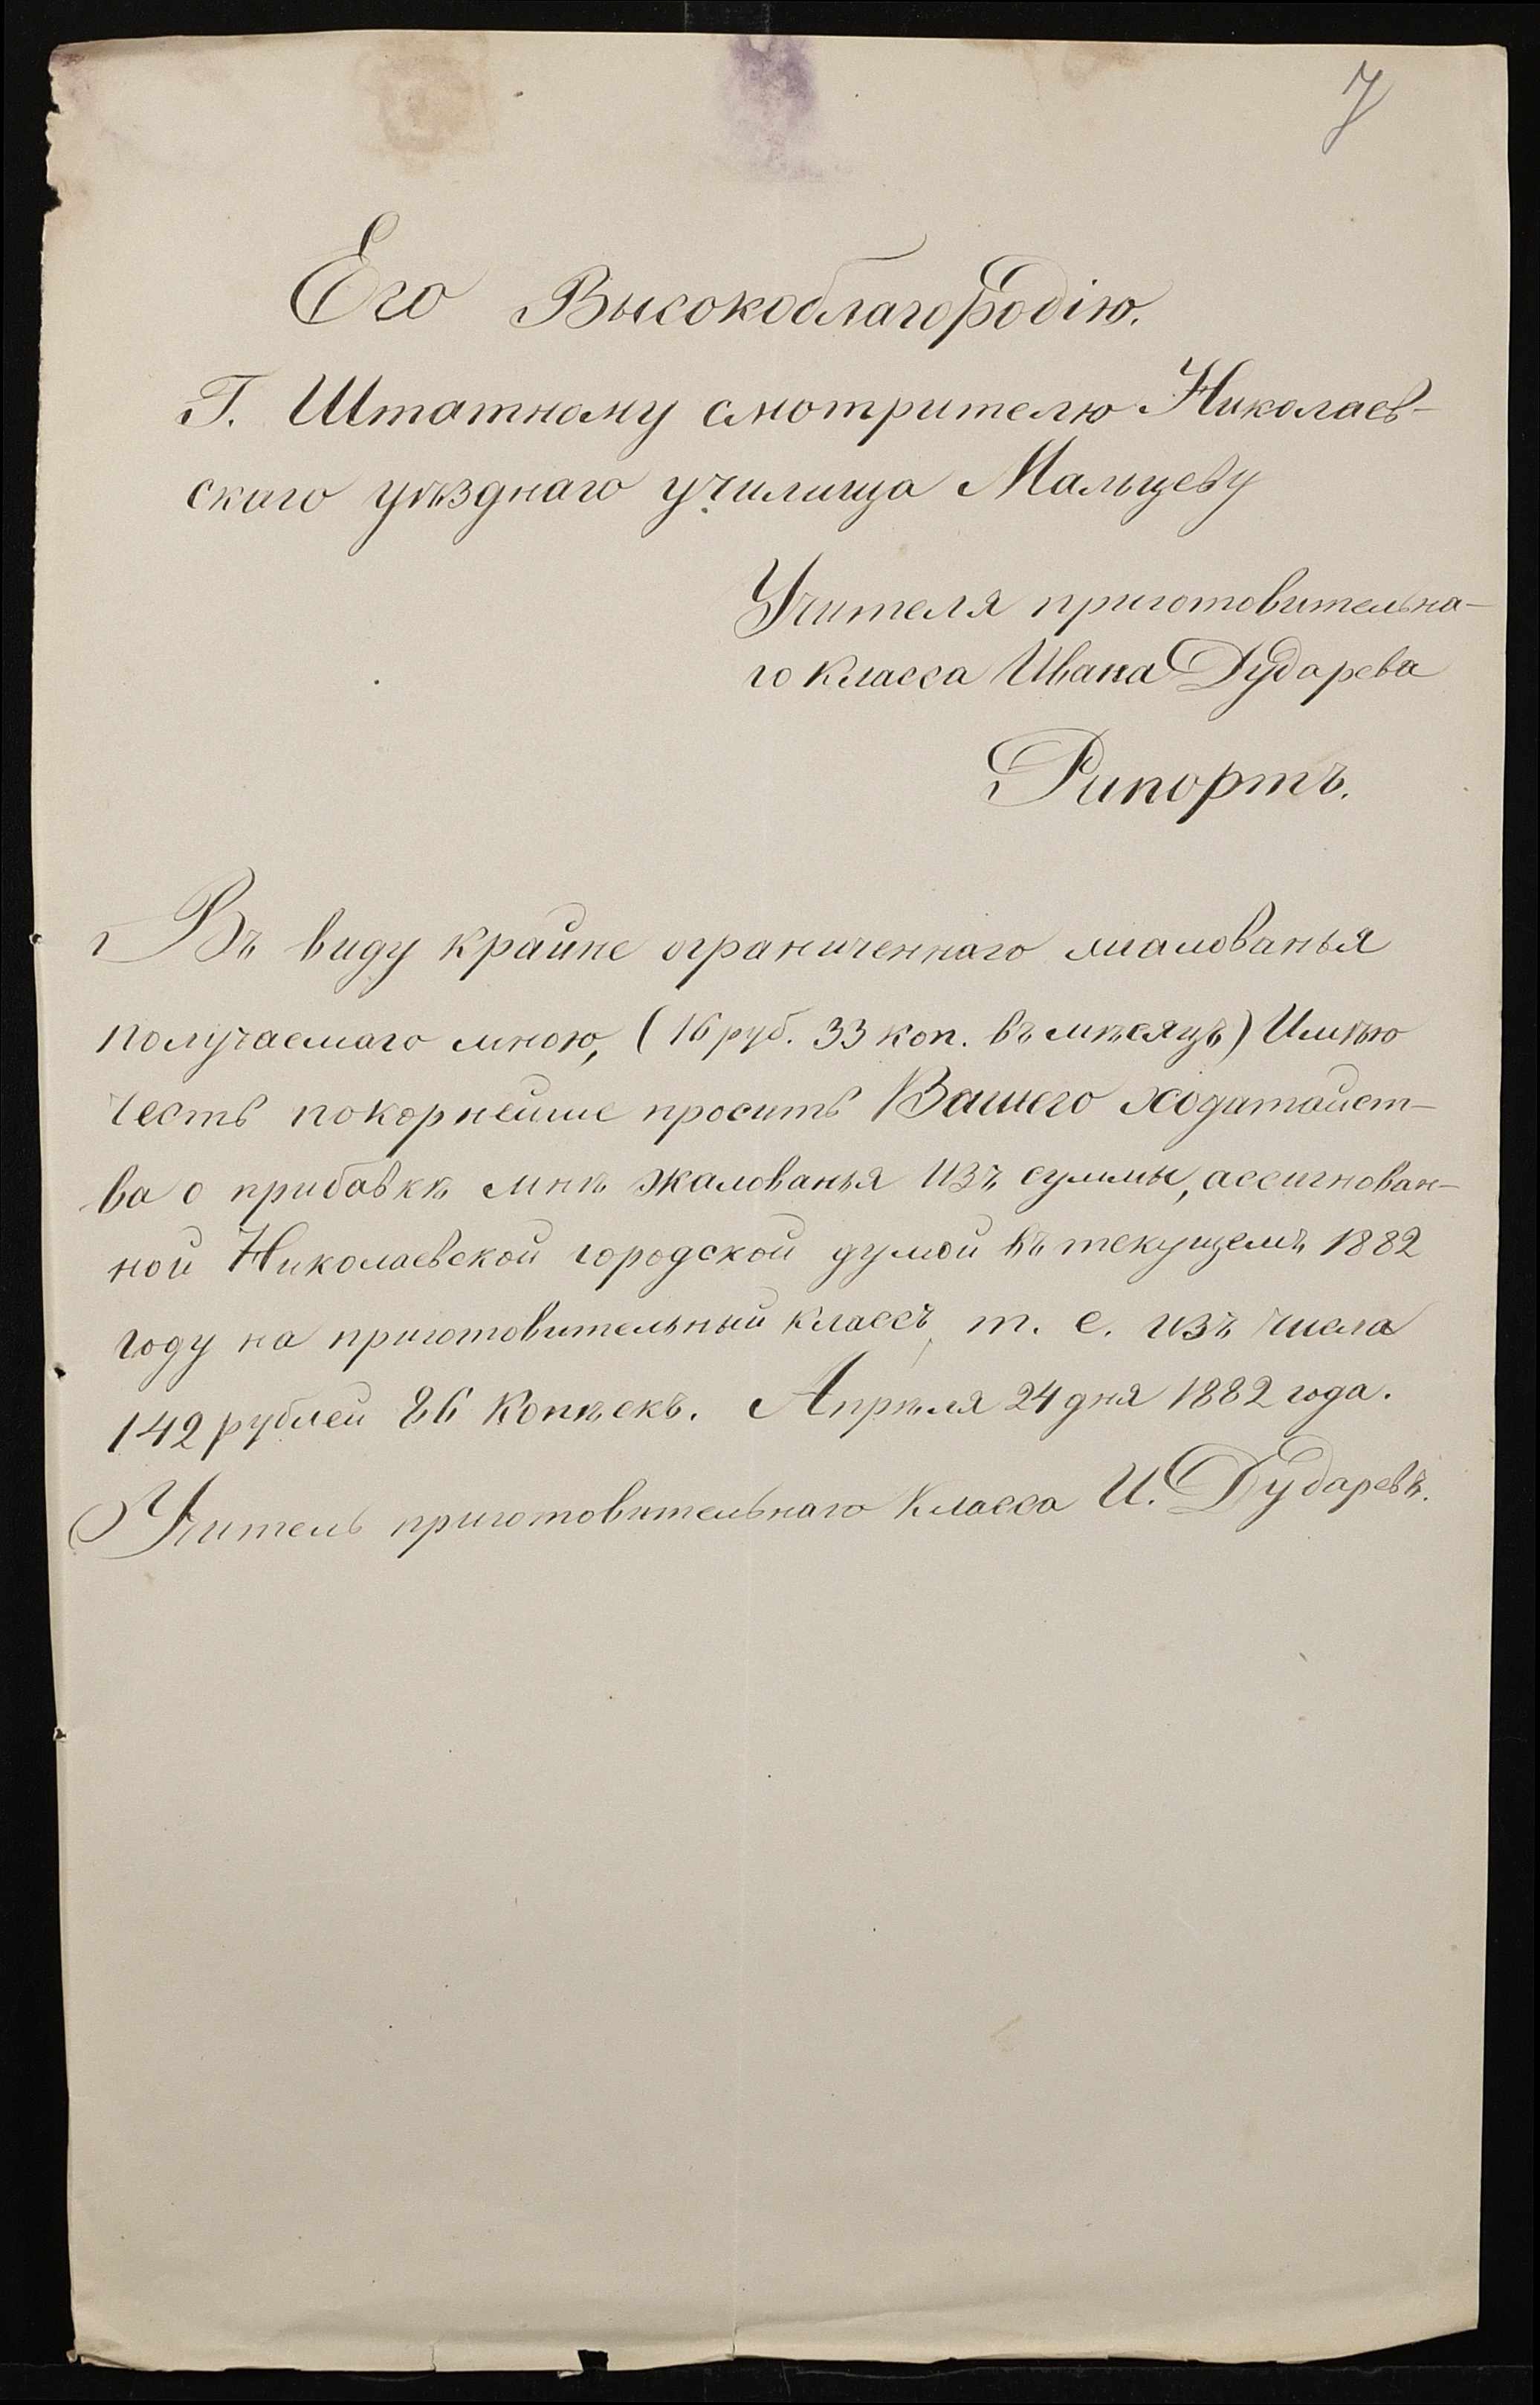 7
Его Высокоблагородію.
Г. Штатному смотрителю Николаев-
скаго уѣзднаго училища Мальцеву
Учителя приготовительна-
го класса Ивана Дударева
Рапортъ.
Въ виду крайне ограниченнаго жалованья
получаемаго мною, (16 руб. 33 коп. въ мѣсяцъ) Имѣю
честь покорнейше просить Вашего ходатайст-
ва о прибавкѣ мнѣ жалованья изъ суммы, ассигнован-
ной Николаевской городской думой въ текущемъ 1882
году на приготовительный классъ, т. е. изъ числа
142 рублей 86 копѣекъ. Апрѣля 24 дня 1882 года.
Учитель приготовительнаго класса И. Дударевъ.